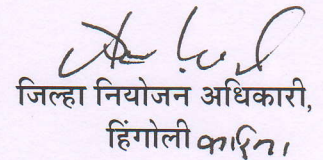 जिल्हा नियोजन अधिकारी,
हिंगोली करिता